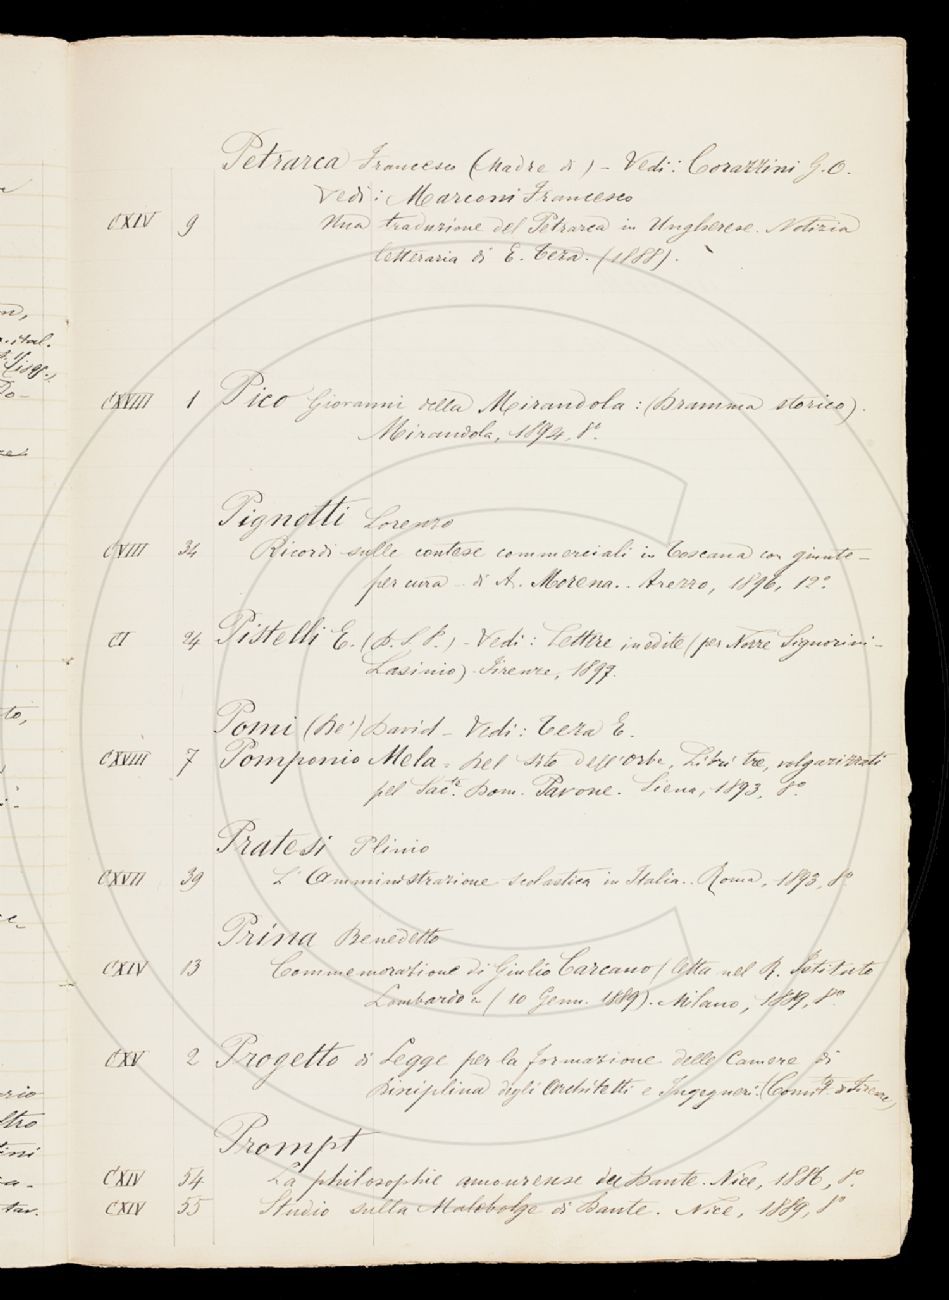 Petrarca Francesco (Madre di) - Vedi: Corazzini G. O.
Vedi: Marconi Francesco
CXIV 9 Una traduzione del Petrarca in Ungherese. Notizia
letteraria di E. Teza. (1888).
CXVIII 1 Pico Giovanni della Mirandola: (Dramma storico).
Mirandola, 1894, 8º.
Pignotti Lorenzo
CVIII 34 Ricordi sulle contese commerciali in Toscana con giunte -
per cura di A. Morena. Arezzo, 1896, 12º
CI 24 Pistelli E. (D. S. P.) - Vedi: Lettere inedite (per Nozze Signorini-
Lasinio) Firenze, 1897.
Pomi (De') David - Vedi: Teza E.
CXVIII 7 Pomponio Mela - Del Sito dell'Orbe, Libri tre, volgarizzati
pel Sacte. Dom. Pavone. Siena, 1893, 8º
Pratesi Plinio
CXVII 39 L'Amministrazione scolastica in Italia. Roma, 1893, 8º
Prina Benedetto
CXIV 13 Commemorazione di Giulio Carcano (letta nel R. Istituto
Lombardo a (10 Genn. 1889). Milano, 1889, 8º.
CXV 2 Progetto di Legge per la formazione delle Camere di
Disciplina degli Architetti e Ingegneri. (Comit. di Firenze)
Prompt
CXIV 54 La philosophie amourense du Dante. Nice, 1886, 8º.
CXIV 55 Studio sulla Malebolge di Dante. Nice, 1889, 8º